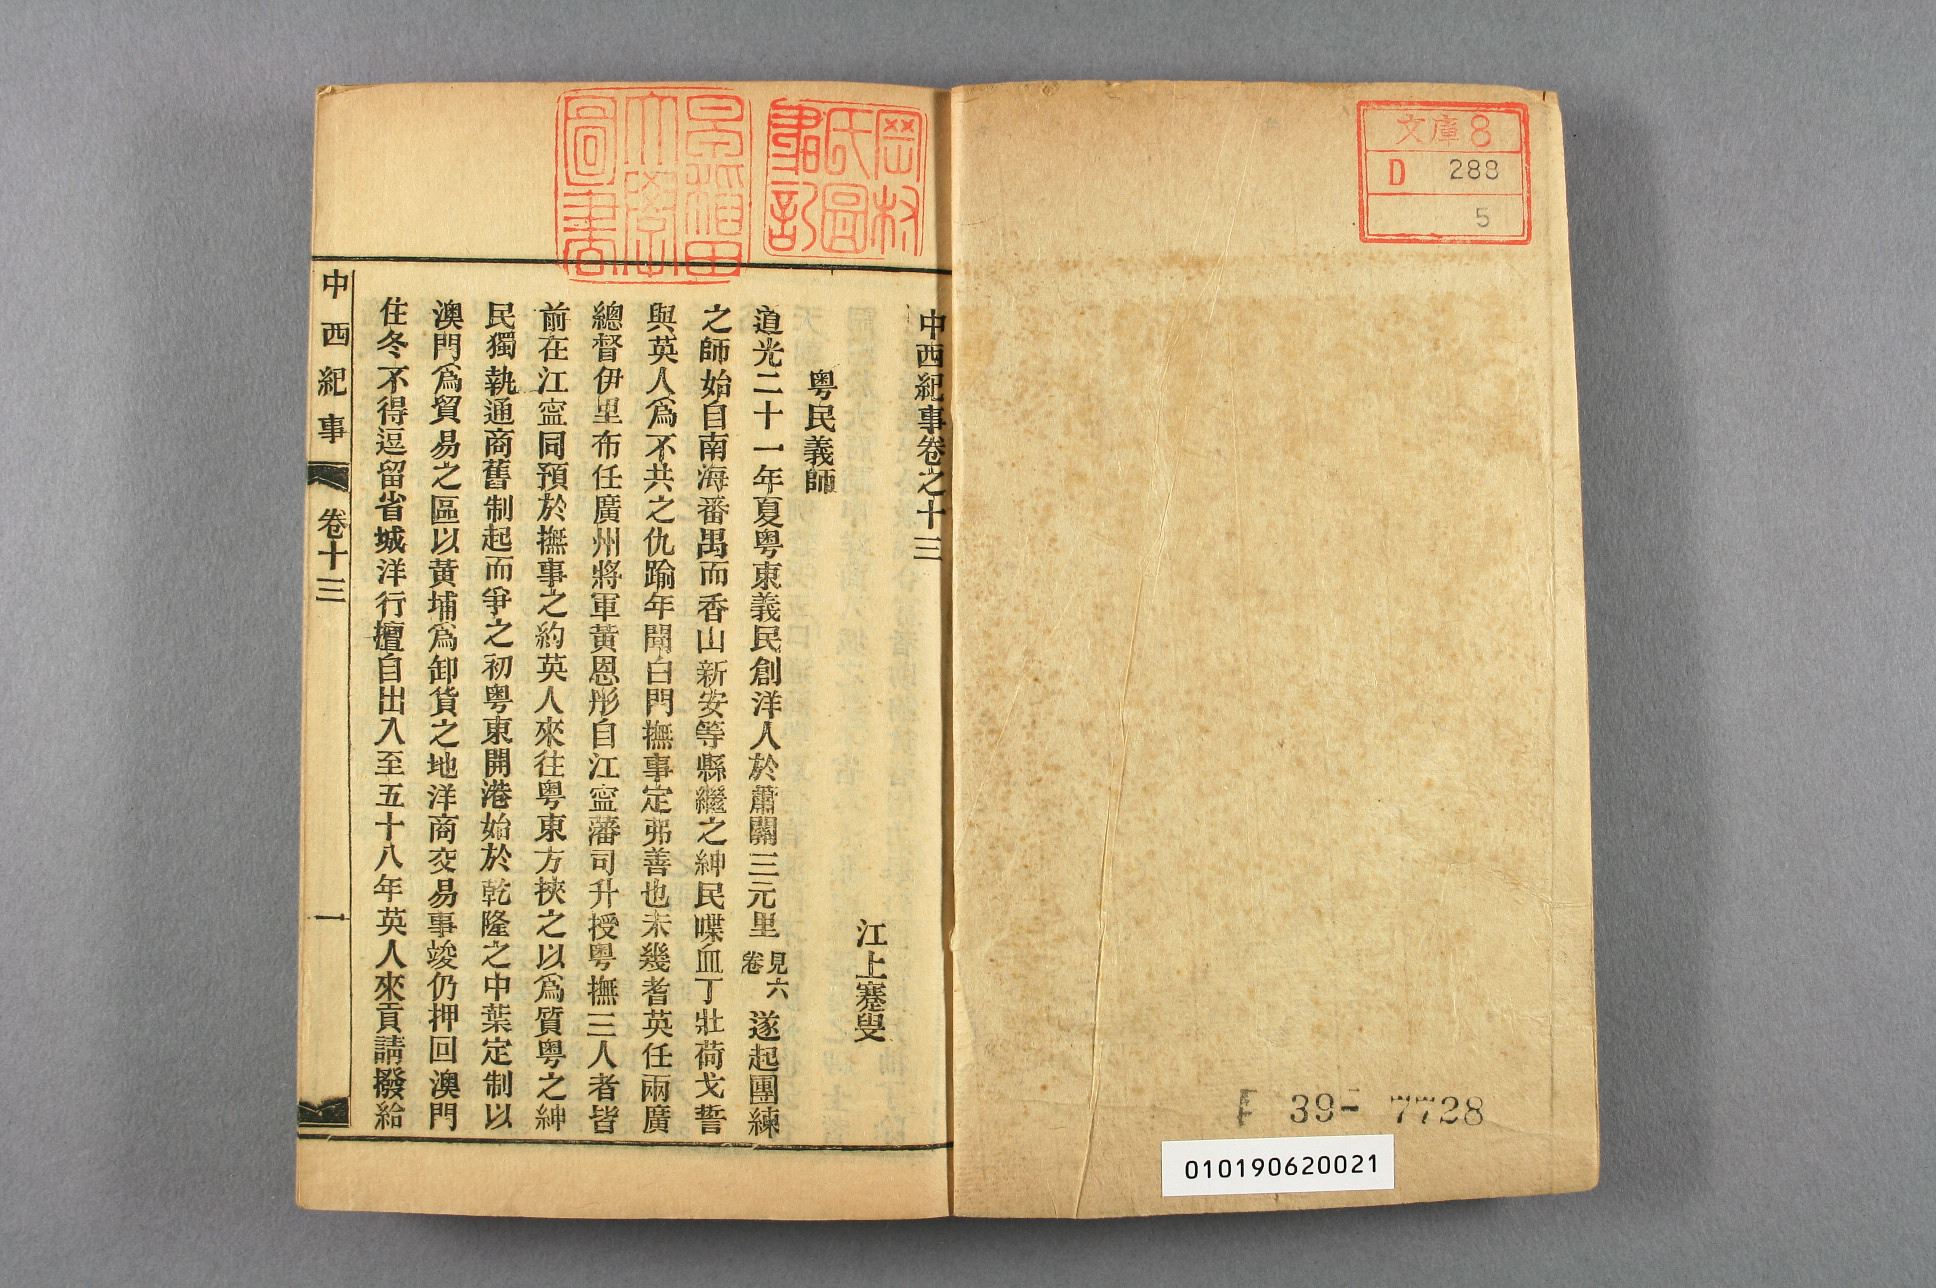 文庫8
D 288
5
F 39-7728
010190620021
岡村
氏圖
書記
早稲田
大學
圖書
中西紀事卷之十三
江上蹇叟
粵民義師
道光二十一年夏粵東義民創洋人於蕭關三元里見六卷遂起團練
之師始自南海番禺而香山新安等縣繼之紳民喋血丁壯荷戈誓
與英人爲不共之仇踰年聞白門撫事定弗善也未幾耆英任兩廣
總督伊里布任廣州將軍黃恩彤自江寍藩司升授粵撫三人者皆
前在江寍同預於撫事之約英人來往粵東方挾之以爲質粵之紳
民獨執通商舊制起而爭之初粵東開港始於乾隆之中葉定制以
澳門爲貿易之區以黃埔爲卸貨之地洋商交易事竣仍押回澳門
住冬不得逗留省城洋行擅自出入至五十八年英人來貢請撥給
中西紀事
卷十三
一